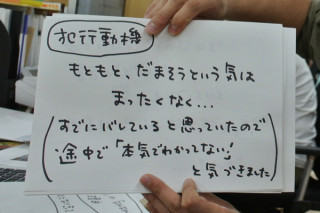 犯行動機
もともと、だまろうという気は
まったくなく...
(すでにバレていると思っていたので
途中で「本気でわかってない!」
と気づきました)